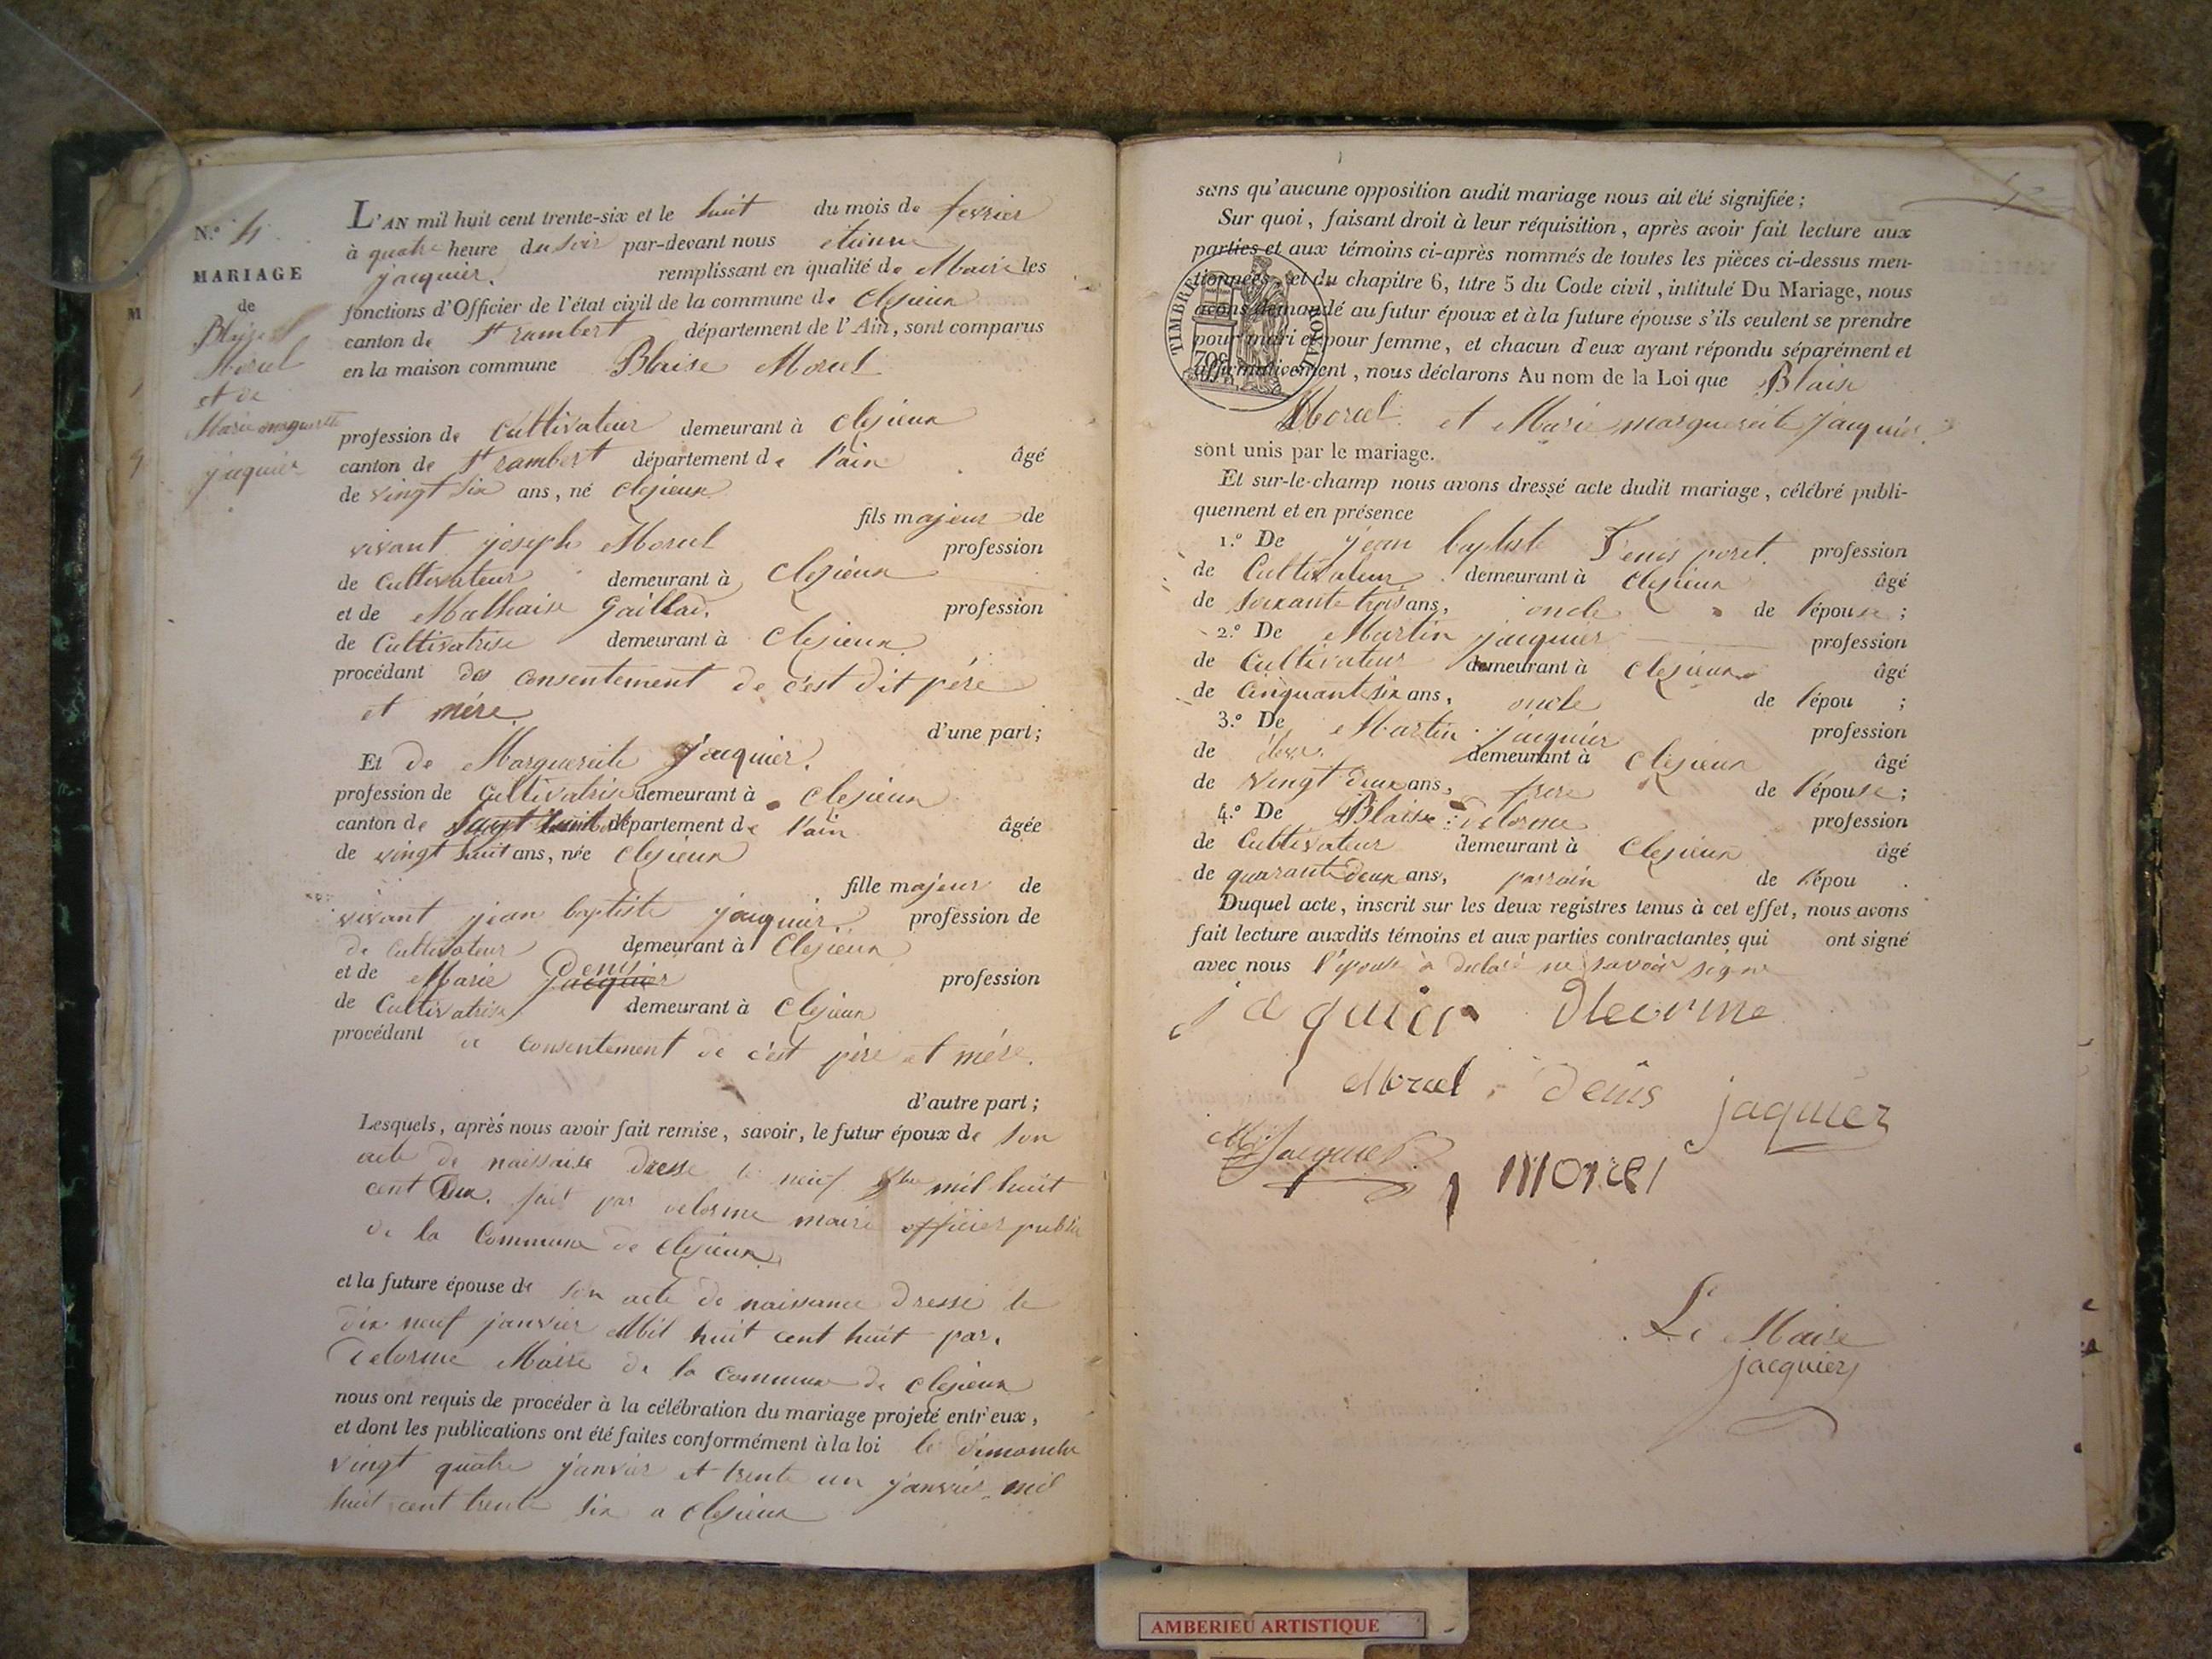 N.° 4
MARIAGE
de
Blaise
Morel
et de
Marie marguerite
jacquier
L'AN mil huit cent trente-six et le huit du mois de fevrier
à quatre heure du soir par-devant nous etienne
jacquier. remplissant en qualité de Maire les
fonctions d'Officier de l'état civil de la commune de Clesieux
canton de St rambert département de l'Ain, sont comparus
en la maison commune Blaise Morel
profession de Cultivateur demeurant à Clesieux
canton de St rambert département de l'ain âgé
de vingt six ans, né Clesieux
fils majeur de
vivant joseph Morel profession
de Cultivateur demeurant à Clesieux
et de Mathaise Gaillad. profession
de Cultivatrise demeurant à Clesieux
procédant des consentement de c'est dit pére
et mére.
d'une part;
Et de Marguerite Jacquier.
profession de Cultivatrise demeurant à Clesieux
canton de département de l'ain âgée
de vingt huit ans, née Clesieux
fille majeur de
vivant jean baptiste jacquier profession de
de Cultivateur demeurant à Clesieux
et de Marie Jacquier Denis profession
de Cultivatrise demeurant à Clesieux
procédant de consentement de c'est pére et mére.
d'autre part;
Lesquels, après nous avoir fait remise, savoir, le futur époux de son
acte de naissaise dresse le neuf mil huit
cent Dix. fait par delorme maire officier public
de la Commune de Clesieux
et la future épouse de son acte de naissance dressé le
dix neuf janvier Mil huit cent huit par.
delorme Maire de la commune de Clesieux
nous ont requis de procéder à la célébration du mariage projeté entr'eux,
et dont les publications ont été faites conformément à la loi le dimanche
vingt quatre janvier et trente un janvier mil
huit cent trente six a Clesieux
sans qu'aucune opposition audit mariage nous ait été signifiée;
Sur quoi, faisant droit à leur réquisition, après avoir fait lecture aux
parties et aux témoins ci-après nommés de toutes les pièces ci-dessus men-
tionnées, et du chapitre 6, titre 5 du Code civil, intitulé Du Mariage, nous
avons demandé au futur époux et à la future épouse s'ils veulent se prendre
pour mari et pour femme, et chacun d'eux ayant répondu séparément et
affirmativement, nous déclarons Au nom de la Loi que Blaise
Morel et Marie marguereite jacquier.
sont unis par le mariage.
Et sur-le-champ nous avons dressé acte dudit mariage, célébré publi-
quement et en présence
1.° De jean baptiste Denis poret. profession
de Cultivateur demeurant à Clesieux âgé
de soixante trois ans, oncle de l'épouse;
2.° De Martin jacquier profession
de Cultivateur demeurant à Clesieux âgé
de Cinquant six ans, oncle de l'épou ;
3.° De Martin jacquier profession
de demeurant à Clesieux âgé
de vingt deux ans, frere de l'épouse;
4.° De Blaise delorme profession
de Cultivateur demeurant à Clesieux âgé
de quarante deux ans, parrain de l'épou .
Duquel acte, inscrit sur les deux registres tenus à cet effet, nous avons
fait lecture auxdits témoins et aux parties contractantes qui ont signé
avec nous l'épouse a declaré ne savoir signe
TIMBRE ROYAL
70c
jaquier Dleorme
Morel Denis jaquier
Mi Jacquier morel
Le Maire
jacquier
AMBERIEU ARTISTIQUE